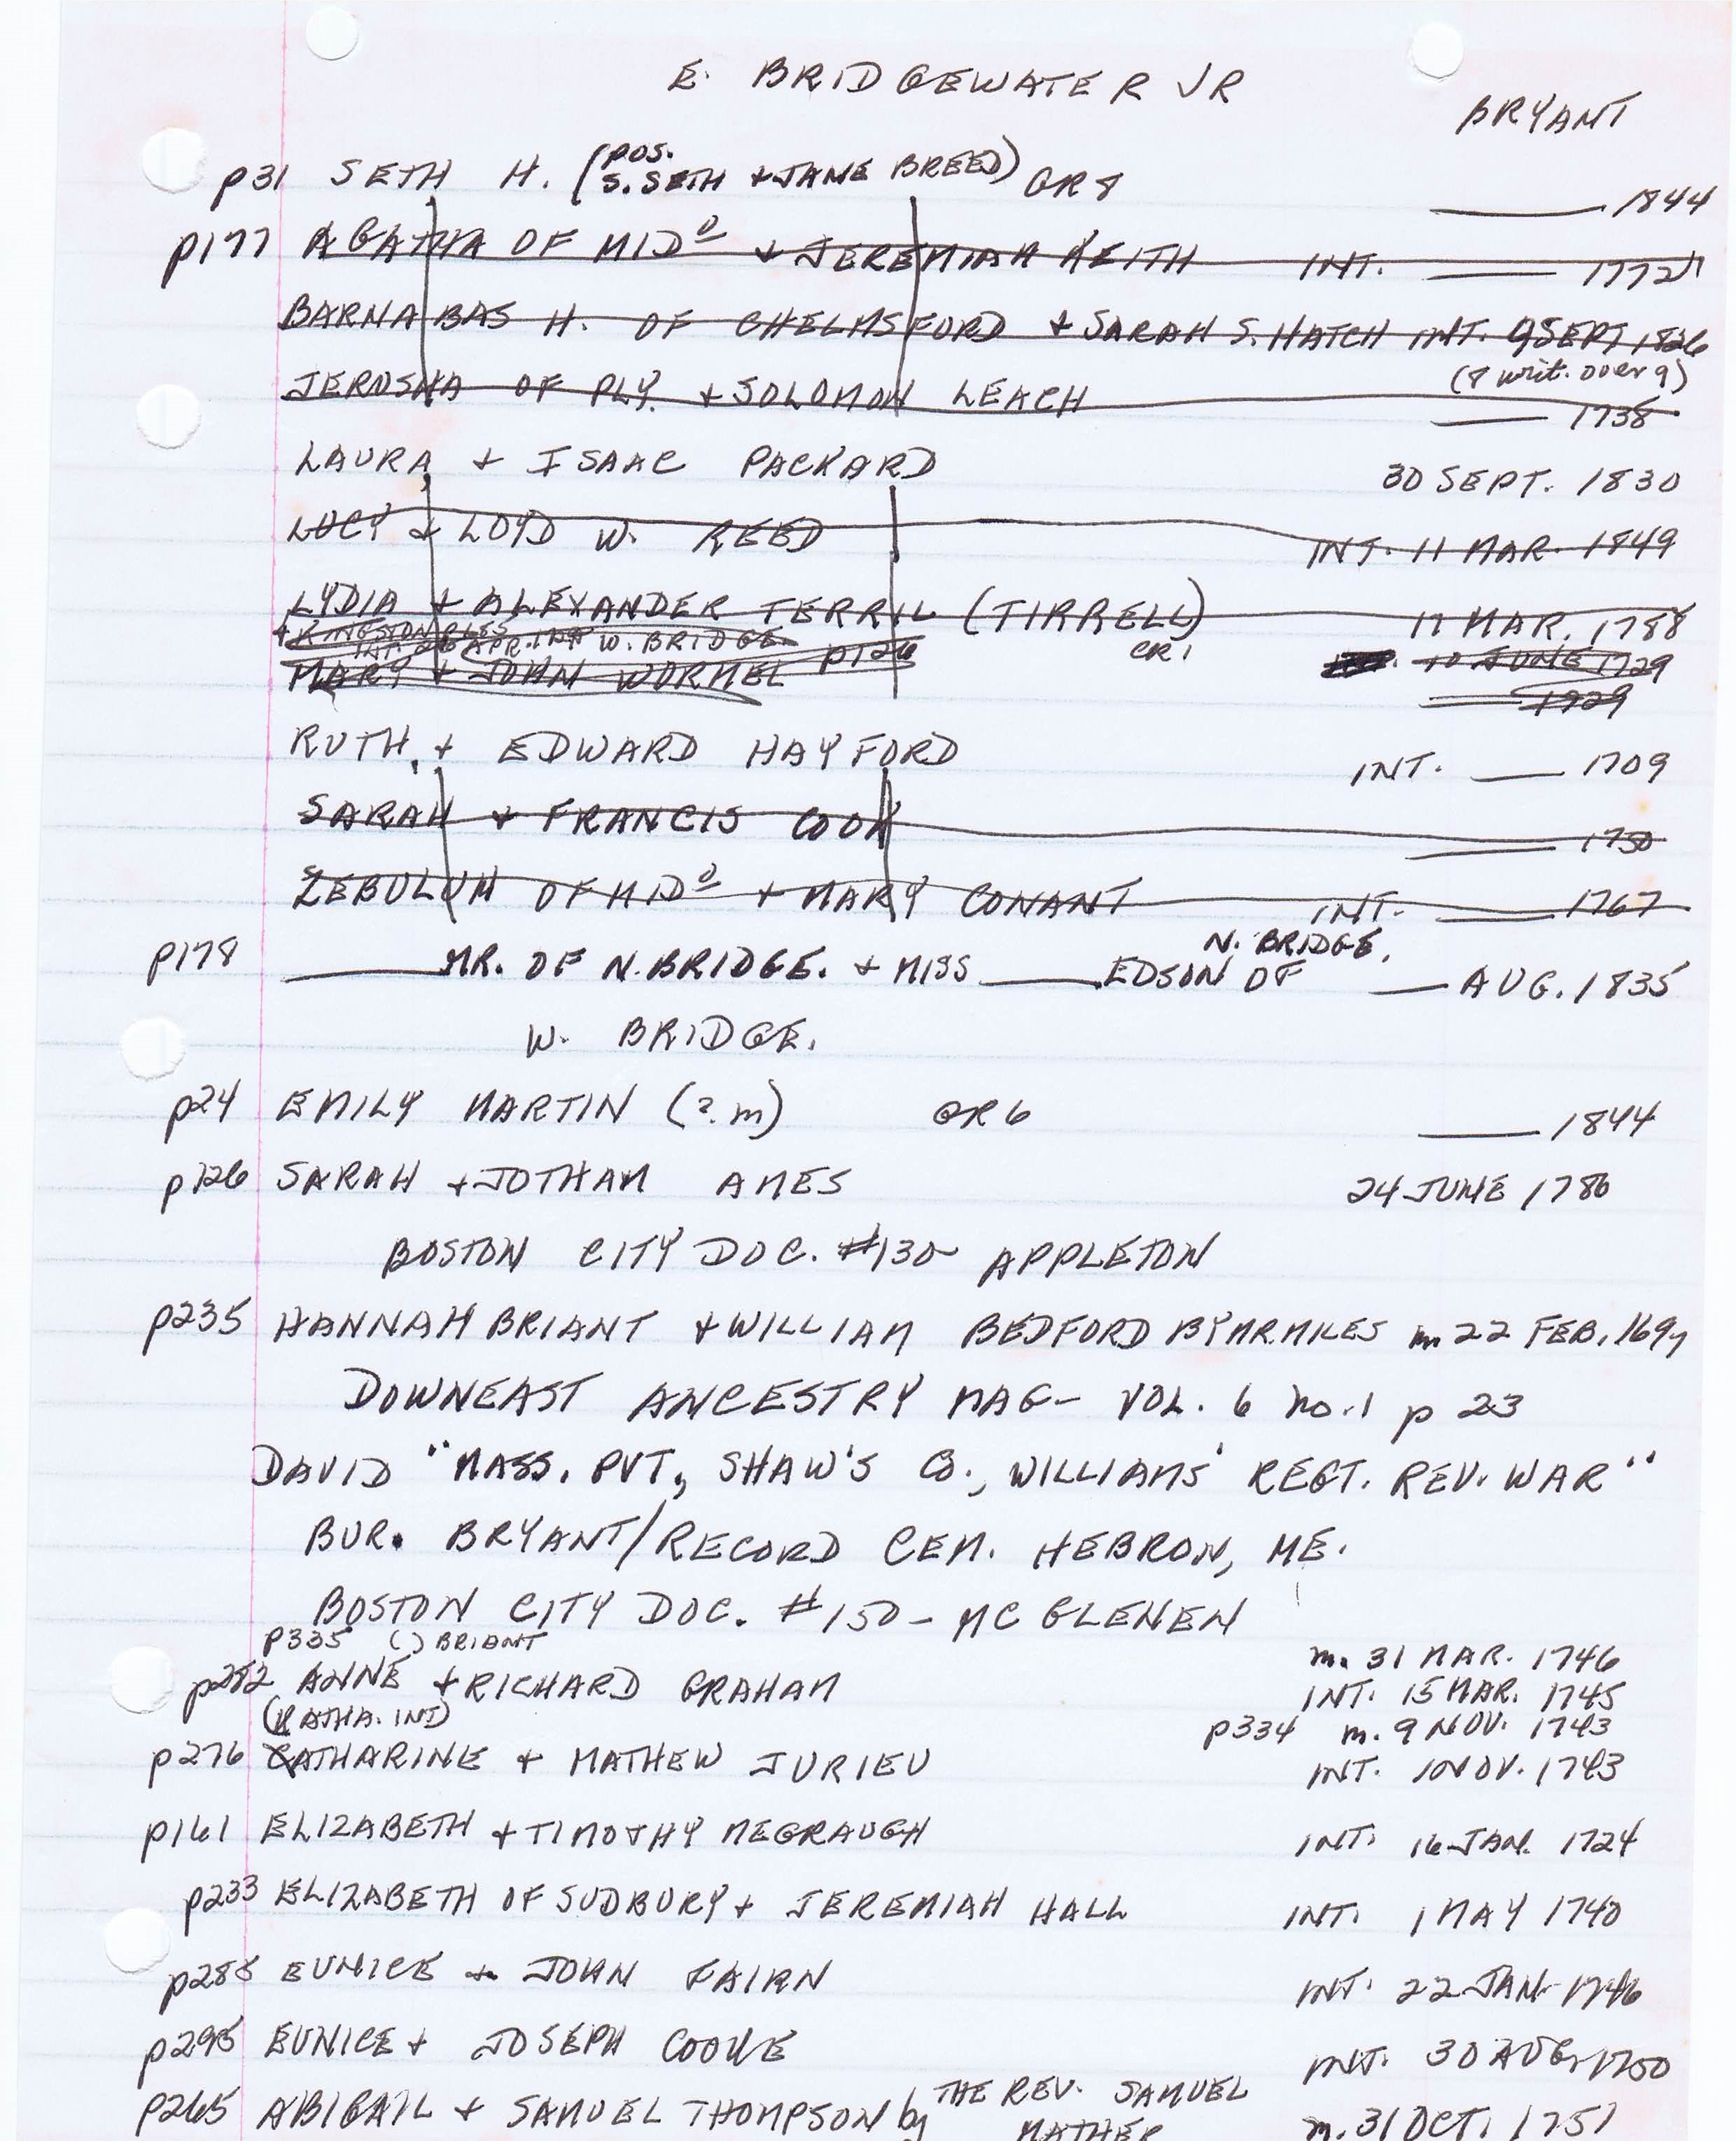 E. BRIDGEWATER VR
BRYANT
p31 SETH H. (POS. S. SETH + JANE BREED) GR 8 ——— 1844
p177 AGATHA OF MIDD + JEREMIAH KEITH INT. ——— 1772
BARNABAS H. OF CHELMSFORD + SARAH S. HATCH INT. 9 SEPT 1826
(8 writ. over 9)
JERUSHA OF PLY. + SOLOMON LEACH ——— 1738
LAURA + ISAAC PACKARD 30 SEPT. 1830
LUCY + LOYD W. REED INT. 11 MAR. 1849
LYDIA + ALEXANDER TERRIL (TIRRELL) 17 MAR. 1788
+ KINGSTON
INT. APR. W. BRIDGE CR1
MARY + JOHN WORMEL p126 10 JUNE 1729
——— 1729
RUTH + EDWARD HAYFORD INT. ——— 1709
SARAH + FRANCIS COOK ——— 1730
ZEBULUM OF MIDD + MARY CONANT INT. ——— 1767
N. BRIDGE.
p178 ——— MR. OF N. BRIDGE. + MISS ——— EDSON OF ——— AUG. 1835
W. BRIDGE.
p24 EMILY MARTIN (?m) GR6 ——— 1844
p126 SARAH + JOTHAM AMES 24 JUNE 1786
BOSTON CITY DOC. #130 - APPLETON
p235 HANNAH BRIANT + WILLIAM BEDFORD BY MR. MILES m 22 FEB. 1697
DOWNEAST ANCESTRY MAG - VOL. 6 no. 1 p 23
DAVID "MASS. PVT, SHAW'S CO., WILLIAMS' REGT. REV. WAR"
BUR. BRYANT/RECORD CEM. HEBRON, ME.
BOSTON CITY DOC. #150 - MC GLENEN
p335 () BRIANT m. 31 MAR. 1746
p282 ANNE + RICHARD GRAHAM INT. 15 MAR. 1745
(KATHA. INT) p334 m. 9 NOV. 1743
p276 CATHARINE + MATHEW JURIEU INT. 1 NOV. 1743
p161 ELIZABETH + TIMOTHY MEGRAUGH INT. 16 JAN. 1724
p233 ELIZABETH OF SUDBURY + JEREMIAH HALL INT. 1 MAY 1740
p285 EUNICE + JOHN FAIRN INT. 22 JAN 1746
p295 EUNICE + JOSEPH COOKE INT. 30 AUG. 1750
p265 ABIGAIL + SAMUEL THOMPSON by THE REV. SAMUEL MATHER m. 31 OCT. 1751